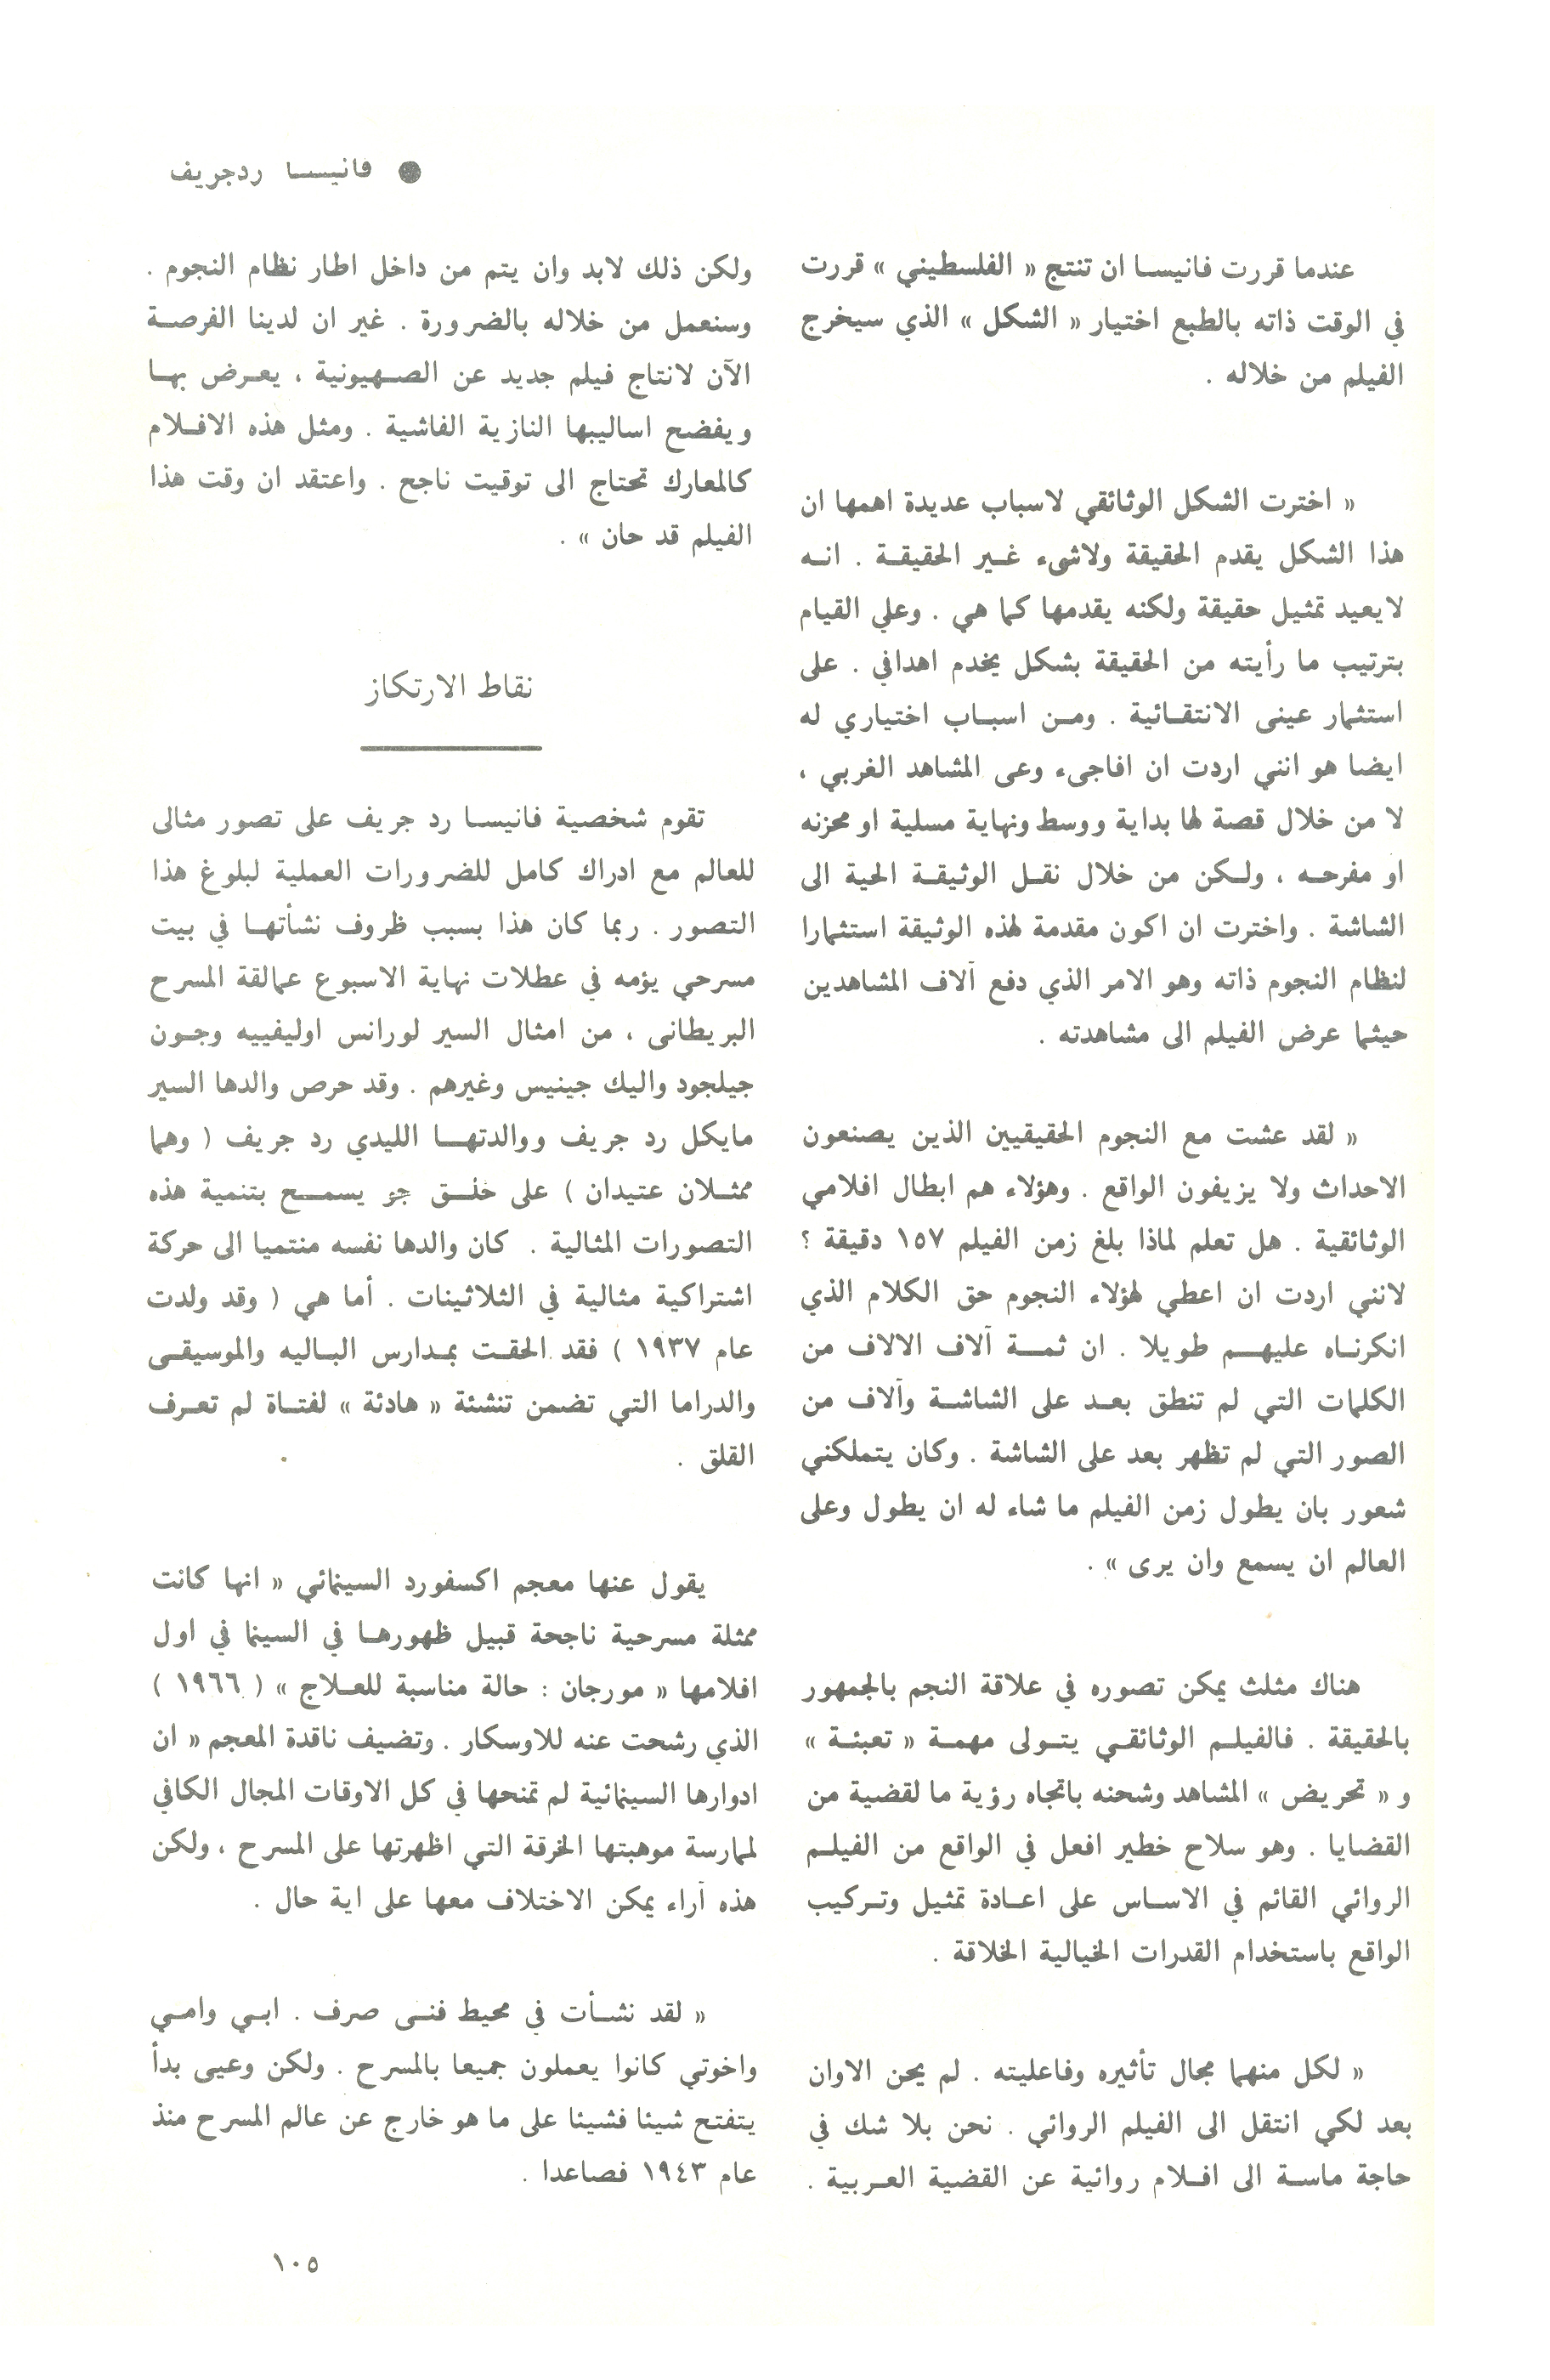 ● فانيسا ردجريف
عندما قررت فانيسا ان تنتج « الفلسطيني » قررت
في الوقت ذاته بالطبع اختيار « الشكل » الذي سيخرج
الفيلم من خلاله .
« اخترت الشكل الوثائقي لاسباب عديدة اهمها ان
هذا الشكل يقدم الحقيقة ولاشىء غير الحقيقة . انه
لايعيد تمثيل حقيقة ولكنه يقدمها كما هي . وعلي القيام
بترتيب ما رأيته من الحقيقة بشكل يخدم اهدافي . على
استثمار عينى الانتقائية . ومن اسباب اختياري له
ايضا هو انني اردت ان افاجىء وعى المشاهد الغربي ،
لا من خلال قصة لها بداية ووسط ونهاية مسلية او محزنه
او مفرحه ، ولكن من خلال نقل الوثيقة الحية الى
الشاشة . واخترت ان اكون مقدمة لهذه الوثيقة استثمارا
لنظام النجوم ذاته وهو الامر الذي دفع آلاف المشاهدين
حيثما عرض الفيلم الى مشاهدته .
« لقد عشت مع النجوم الحقيقيين الذين يصنعون
الاحداث ولا يزيفون الواقع . وهؤلاء هم ابطال افلامي
الوثائقية . هل تعلم لماذا بلغ زمن الفيلم ١٥٧ دقيقة ؟
لانني اردت ان اعطي لهؤلاء النجوم حق الكلام الذي
انكرناه عليهم طويلا . ان ثمة آلاف الالاف من
الكلمات التي لم تنطق بعد على الشاشة وآلاف من
الصور التي لم تظهر بعد على الشاشة . وكان يتملكني
شعور بان يطول زمن الفيلم ما شاء له ان يطول وعلى
العالم ان يسمع وان يرى » .
هناك مثلث يمكن تصوره في علاقة النجم بالجمهور
بالحقيقة . فالفيلم الوثائقي يتولى مهمة « تعبئة »
و « تحريض » المشاهد وشحنه باتجاه رؤية ما لقضية من
القضايا . وهو سلاح خطير افعل في الواقع من الفيلم
الروائي القائم في الاساس على اعادة تمثيل وتركيب
الواقع باستخدام القدرات الخيالية الخلاقة .
« لكل منهما مجال تأثيره وفاعليته . لم يحن الاوان
بعد لكي انتقل الى الفيلم الروائي . نحن بلا شك في
حاجة ماسة الى افلام روائية عن القضية العربية .
ولكن ذلك لابد وان يتم من داخل اطار نظام النجوم .
وسنعمل من خلاله بالضرورة . غير ان لدينا الفرصة
الآن لانتاج فيلم جديد عن الصهيونية ، يعرض بها
ويفضح اساليبها النازية الفاشية . ومثل هذه الافلام
كالمعارك تحتاج الى توقيت ناجح . واعتقد ان وقت هذا
الفيلم قد حان » .
نقاط الارتكاز
تقوم شخصية فانيسا رد جريف على تصور مثالى
للعالم مع ادراك كامل للضرورات العملية لبلوغ هذا
التصور . ربما كان هذا بسبب ظروف نشأتها في بيت
مسرحي يؤمه في عطلات نهاية الاسبوع عمالقة المسرح
البريطانى ، من امثال السير لورانس اوليفييه وجون
جيلجود واليك جينيس وغيرهم . وقد حرص والدها السير
مايكل رد جريف ووالدتها الليدي رد جريف ( وهما
ممثلان عتيدان ) على خلق جو يسمح بتنمية هذه
التصورات المثالية . كان والدها نفسه منتميا الى حركة
اشتراكية مثالية في الثلاثينات . أما هي ( وقد ولدت
عام ١٩٣٧ ) فقد الحقت بمدارس الباليه والموسيقى
والدراما التي تضمن تنشئة « هادئة » لفتاة لم تعرف
القلق .
يقول عنها معجم اكسفورد السينمائي « انها كانت
ممثلة مسرحية ناجحة قبيل ظهورها في السينما في اول
افلامها « مورجان : حالة مناسبة للعلاج » ( ١٩٦٦ )
الذي رشحت عنه للاوسكار . وتضيف ناقدة المعجم « ان
ادوارها السينمائية لم تمنحها في كل الاوقات المجال الكافي
لممارسة موهبتها الخرقة التي اظهرتها على المسرح ، ولكن
هذه آراء يمكن الاختلاف معها على اية حال .
« لقد نشأت في محيط فنى صرف . ابي وامي
واخوتي كانوا يعملون جميعا بالمسرح . ولكن وعيى بدأ
يتفتح شيئا فشيئا على ما هو خارج عن عالم المسرح منذ
عام ١٩٤٣ فصاعدا .
١٠٥